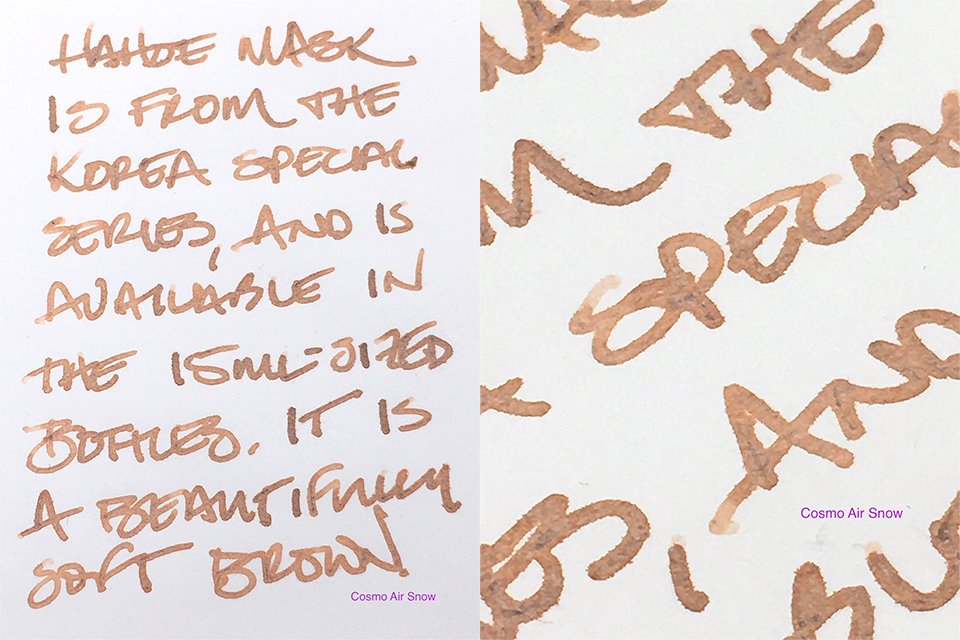 HAHOE MASK
IS FROM THE
KOREA SPECIAL
SERIES, AND IS
AVAILABLE IN
THE 15ML-SIZED
BOTTLES. IT IS
A BEAUTIFULLY
SOFT BROWN
Cosmo Air Snow
M THE
SPECIA
AND
Cosmo Air Snow